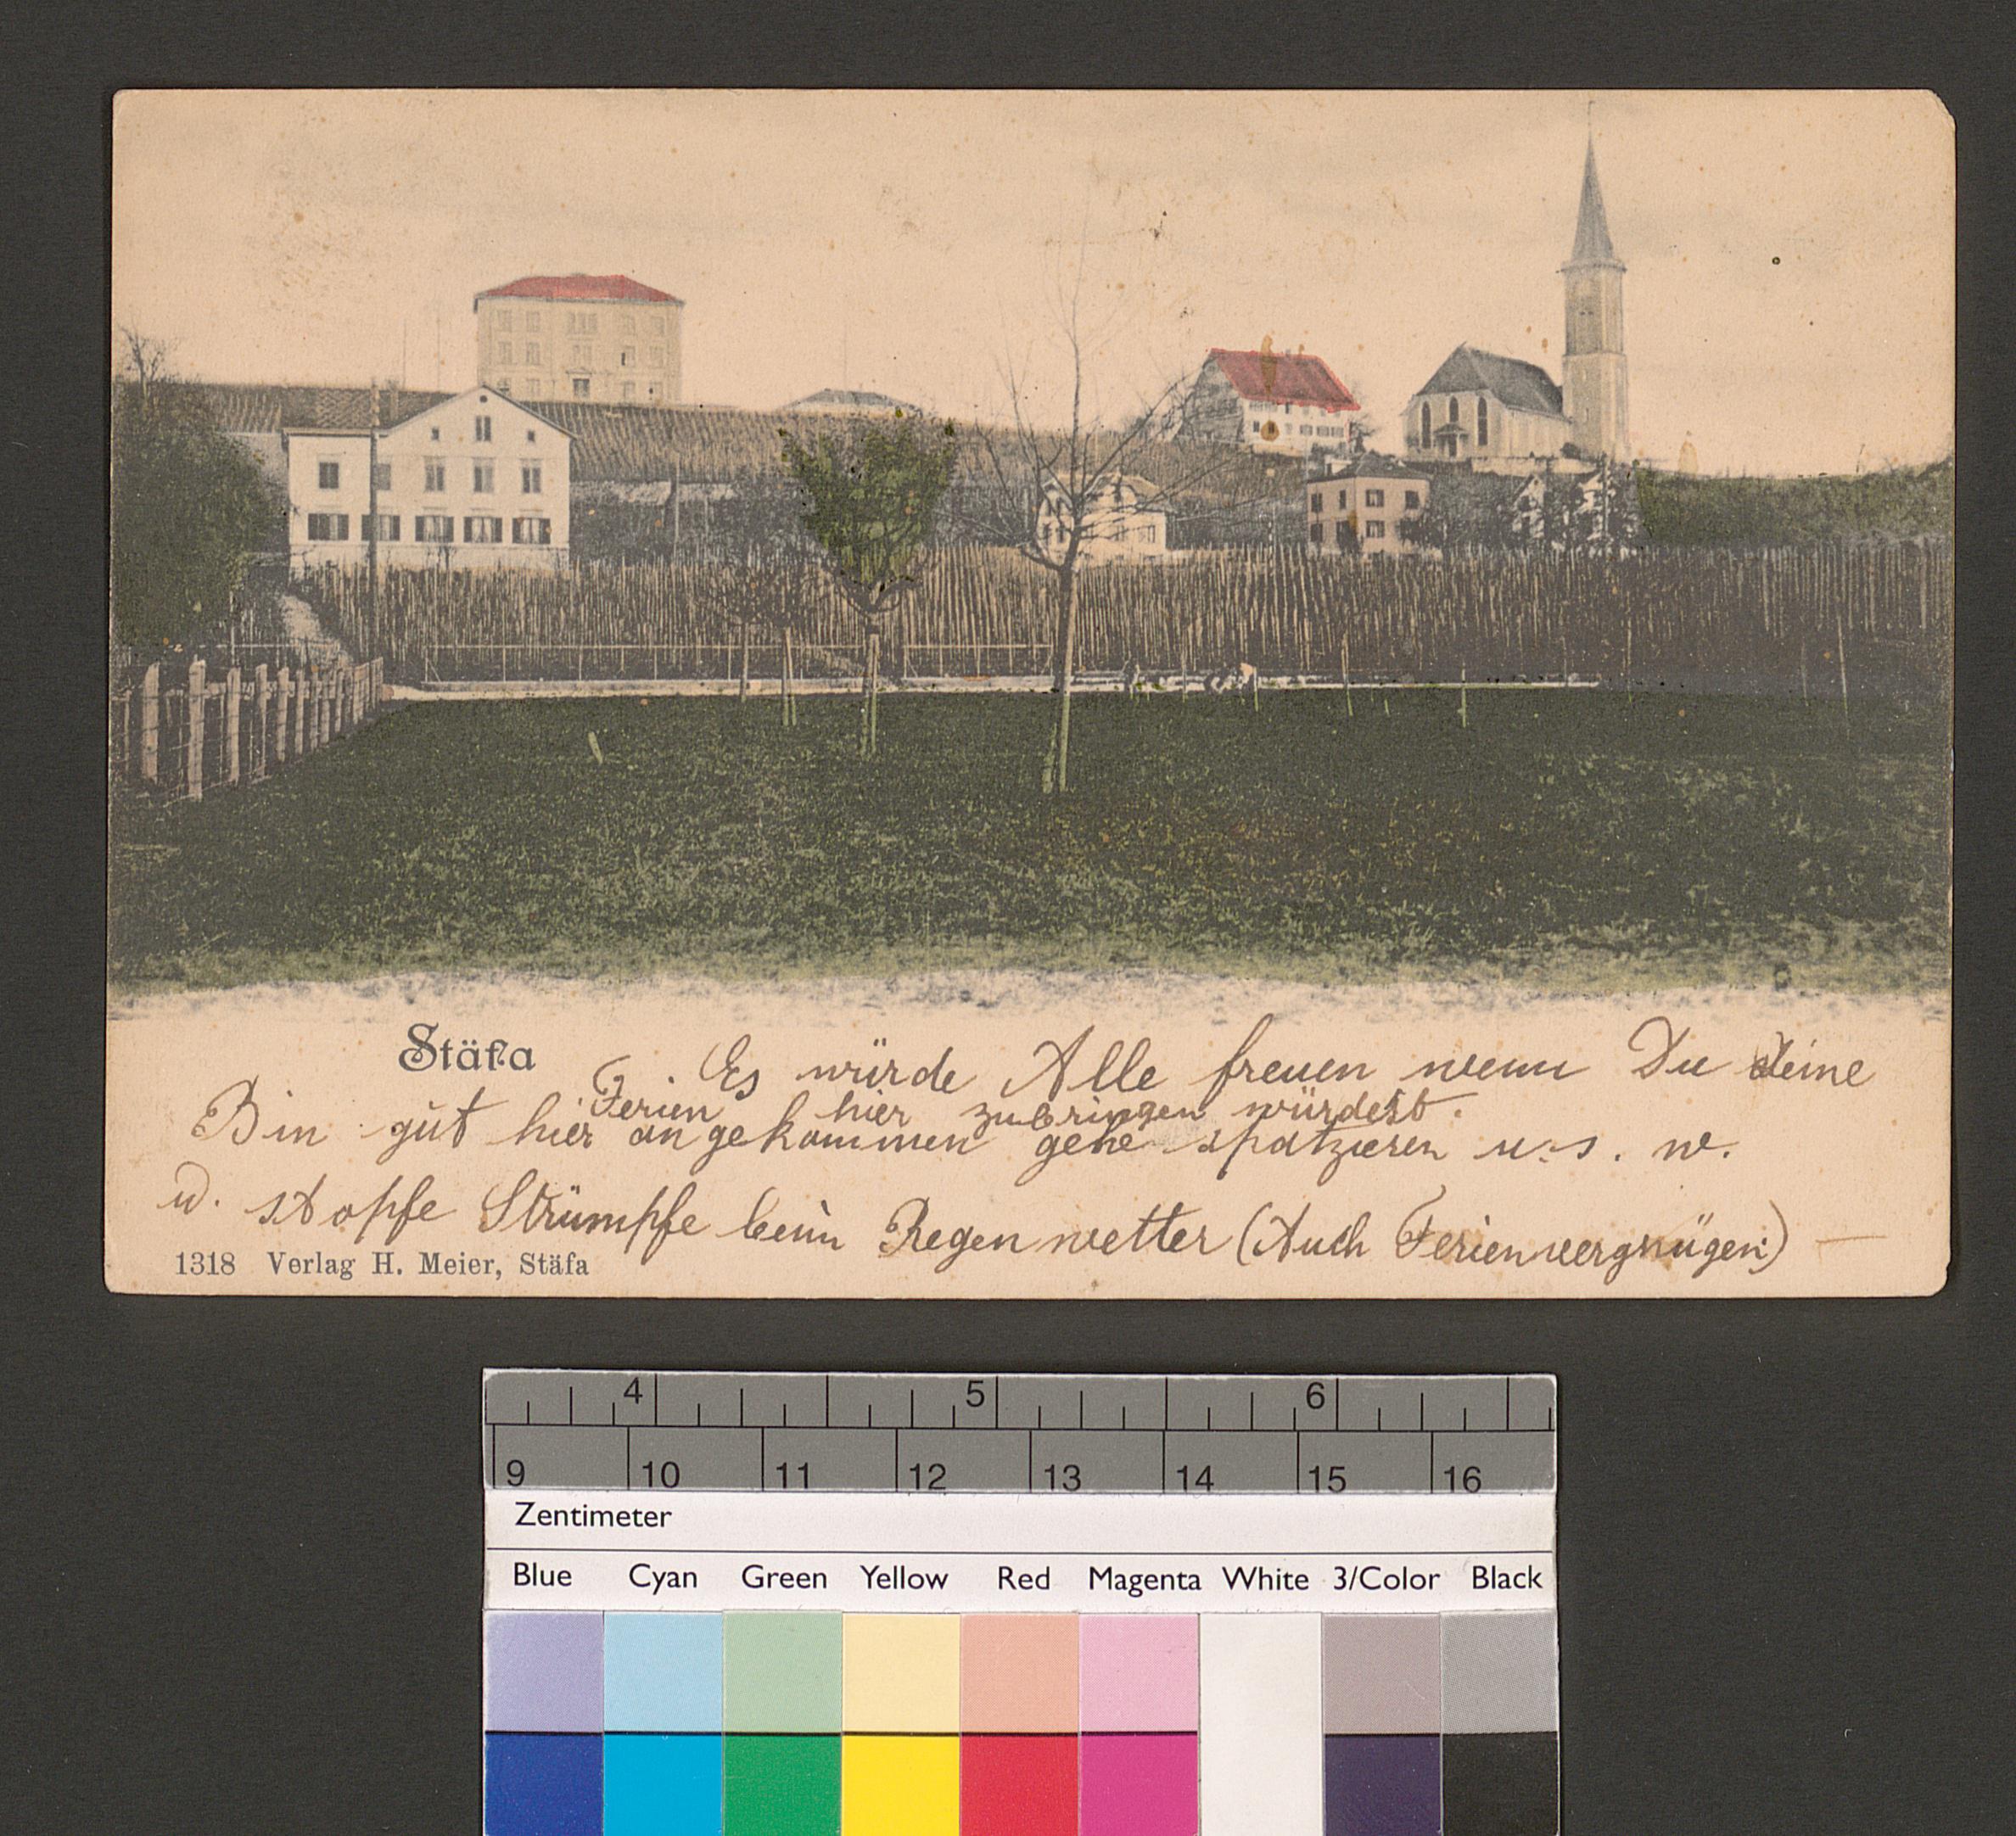 Stäfa
Es würde Alle freuen wenn Du deine
Ferien hier zubringen würdest.
Bin gut hier angekommen gehe spatzieren u. s. w.
u. stopfe Strümpfe beim Regenwetter (Auch Ferienvergnügen) —
1318 Verlag H. Meier, Stäfa
4 5 6
9 10 11 12 13 14 15 16
Zentimeter
Blue Cyan Green Yellow Red Magenta White 3/Color Black